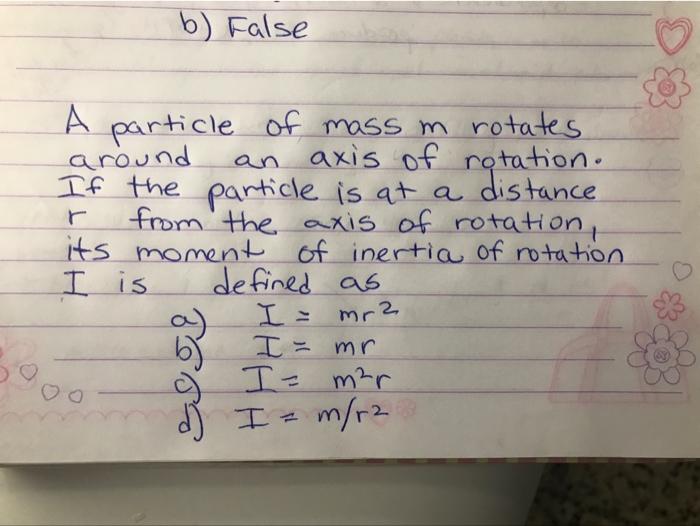 b) False
A particle of mass m rotates
around an axis of rotation.
If the particle is at a distance
r from the axis of rotation,
its moment of inertia of rotation
I is defined as
a) I = mr²
b) I = mr
c) I = m²r
d) I = m/r²